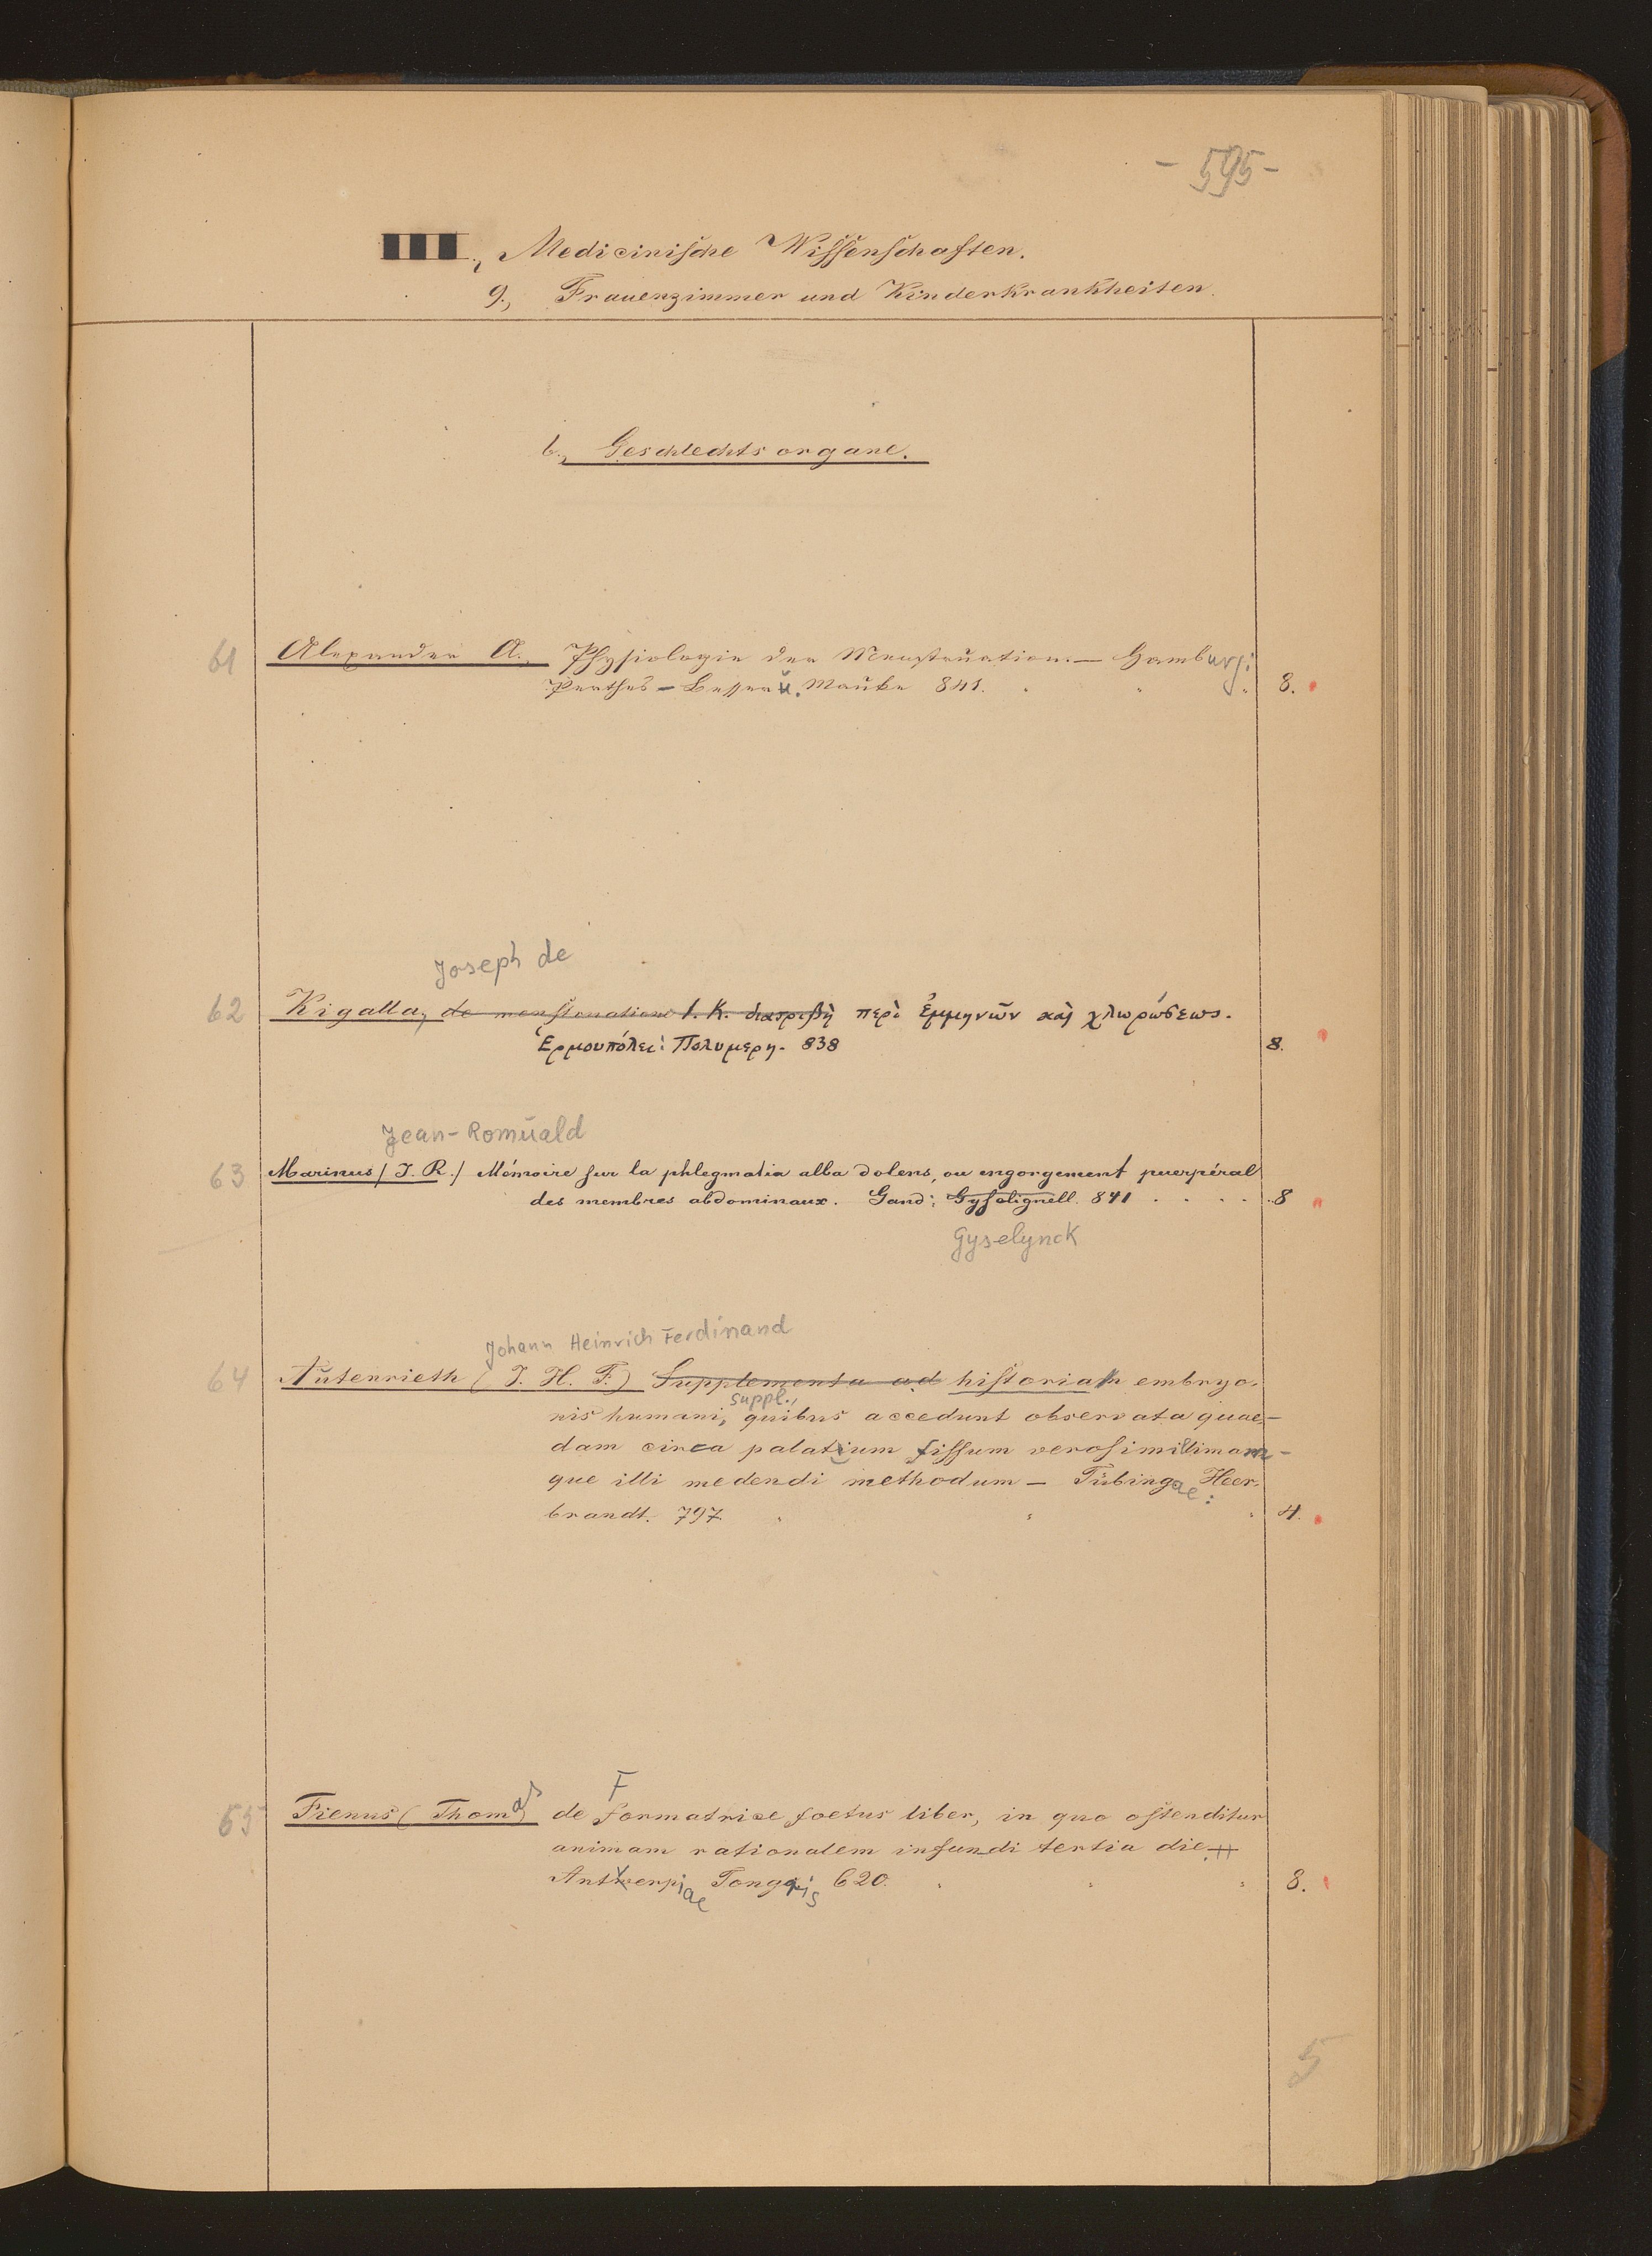 - 595 -
III., Medicinische Wissenschaften.
9., Frauenzimmer und Kinderkrankheiten.
b., Geschlechtsorgane.
61 Alexander A. Physiologie der Menstruation. — Hamburg:
Perthes - Besser u. Mauke 841. 8.
Joseph de
62 Kigalla, de menstruatione I. K. διατριβὴ περὶ ἐμμηνῶν καὶ χλωρώσεως.
Ἑρμουπόλει: Πολυμερη. 838 8.
Jean-Romuald
63 Marinus / J. R. / Mémoire sur la phlegmatia alba dolens, ou engorgement puerpéral
des membres abdominaux. Gand: Gyselignell. 841 . . . . 8
Gyselynck
Johann Heinrich Ferdinand
64 Autenrieth (J. H. F.) Supplementa ad historiam embryo-
suppl.,
nis humani, quibus accedunt observata quae-
dam circa palatium fissum verosimillimam-
que illi medendi methodum — Tübingae: Heer-
brandt. 797. 4.
F
65 Fienus (Thomas) de formatrice foetus liber, in quo ostenditur
animam rationalem infundi tertia die.
Antverpiae Tongris 620. 8.
5